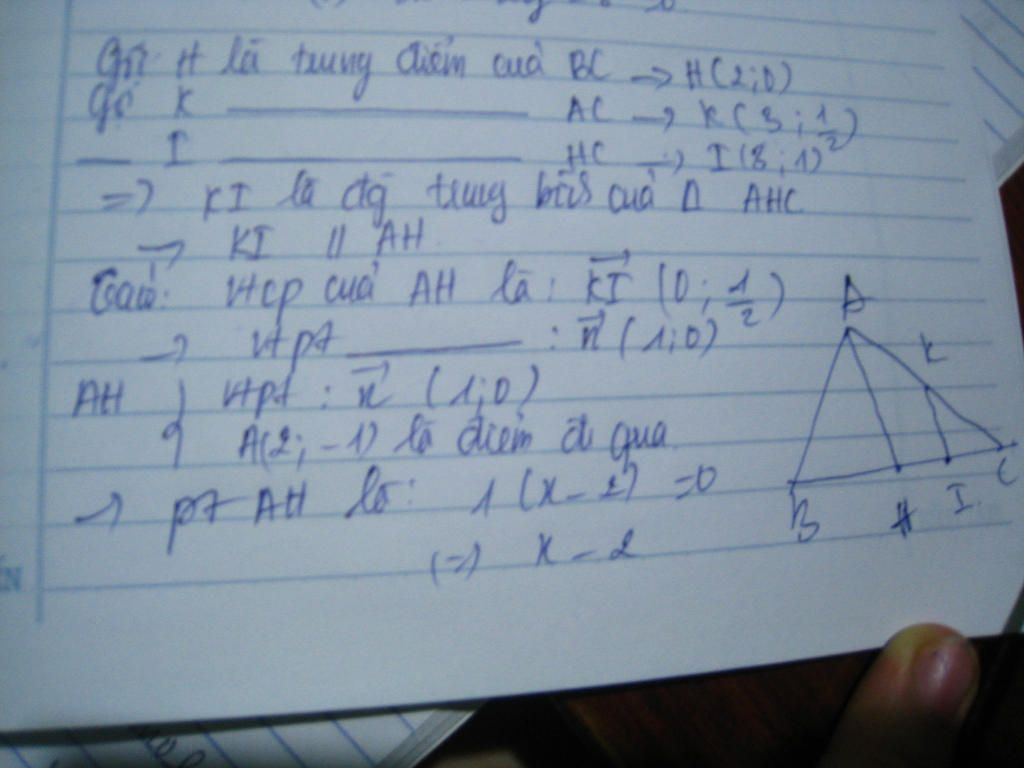 Gọi H là trung điểm cuả BC → H(2;0)
Gọi K ——— AC → K(3; 1/2)
— I ——— HC → I(3;1)
=> KI là đg trung bình cuả Δ AHC
→ KI // AH
vtcp cuả AH là: KI (0; 1/2)
→ vtpt ——— : n (1;0)
AH { vtpt : n (1;0)
A(2;-1) là điểm đi qua
→ pt AH là: 1(x-2) =0
(=) x - 2
A
K
B
H
I
C